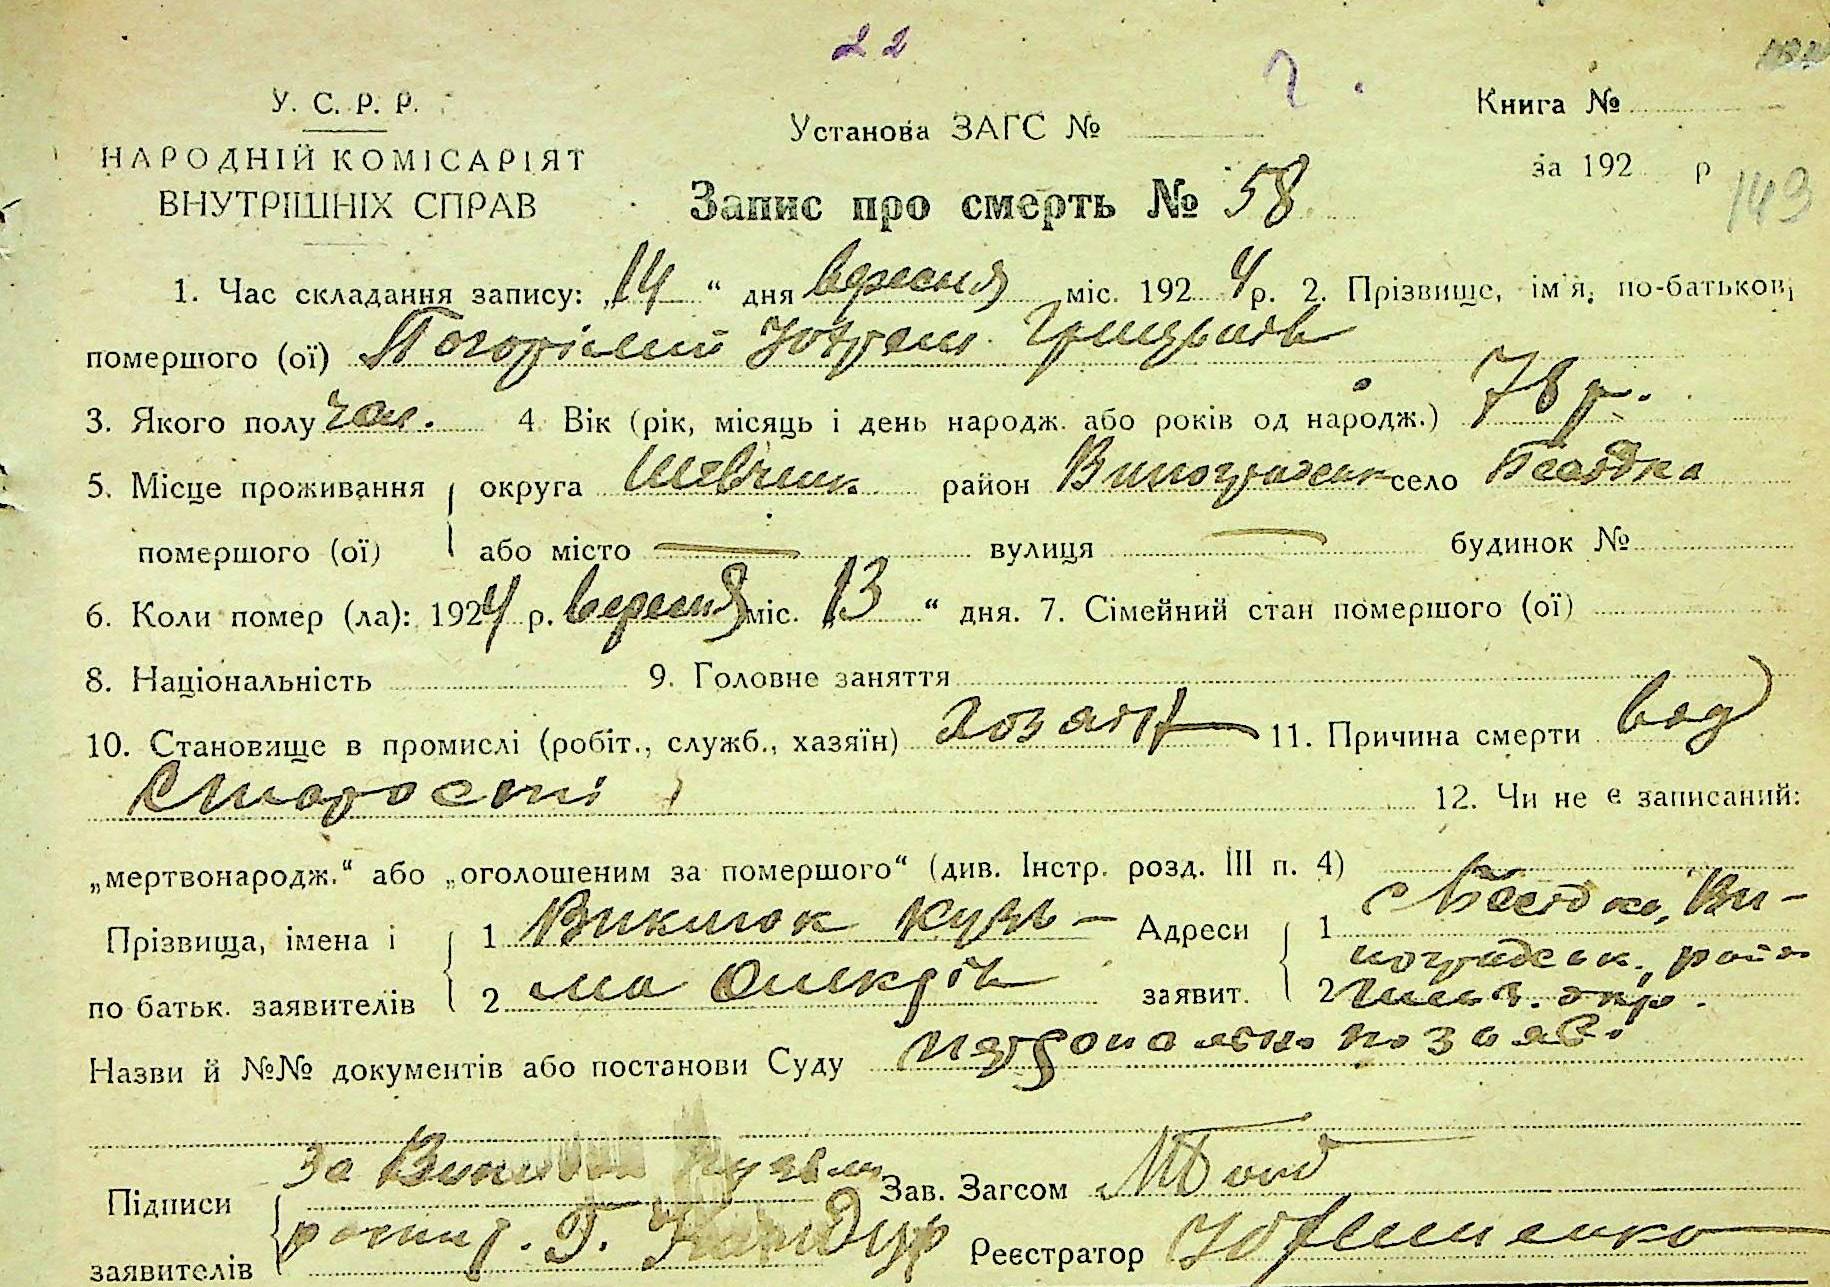 22
У. С. Р. Р.
НАРОДНІЙ КОМІСАРІЯТ
ВНУТРІШНІХ СПРАВ
Установа ЗАГС №
Книга №
за 192 р
149
Запис про смерть № 58
1. Час складання запису: „14“ дня вересня міс. 1924 р. 2. Прізвище, ім'я, по-батькові
помершого (ої) Погорілий Грицьків
3. Якого полу чол. 4 Вік (рік, місяць і день народж. або років од народж.) 78 р.
5. Місце проживання округа Шевченк. район Виноградськ село Беседка
помершого (ої) або місто — вулиця — будинок №
6. Коли помер (ла): 1924 р. вересня міс. „13“ дня. 7. Сімейний стан помершого (ої)
8. Національність 9. Головне заняття
10. Становище в промислі (робіт., служб., хазяїн) хозяїн 11. Причина смерти від
старости 12. Чи не є записаний:
„мертвонародж.“ або „оголошеним за помершого“ (див. Інстр. розд. III п. 4)
Прізвища, імена і 1 Виклюк Кузь- Адреси 1 с Беседка, Ви-
по батьк. заявителів 2 ма заявит. 2 ноградськ. район
Шевч. окр.
Назви й №№ документів або постанови Суду по заяві
Підписи за Кузьму Зав. Загсом
заявителів розпис. Г. Реєстратор